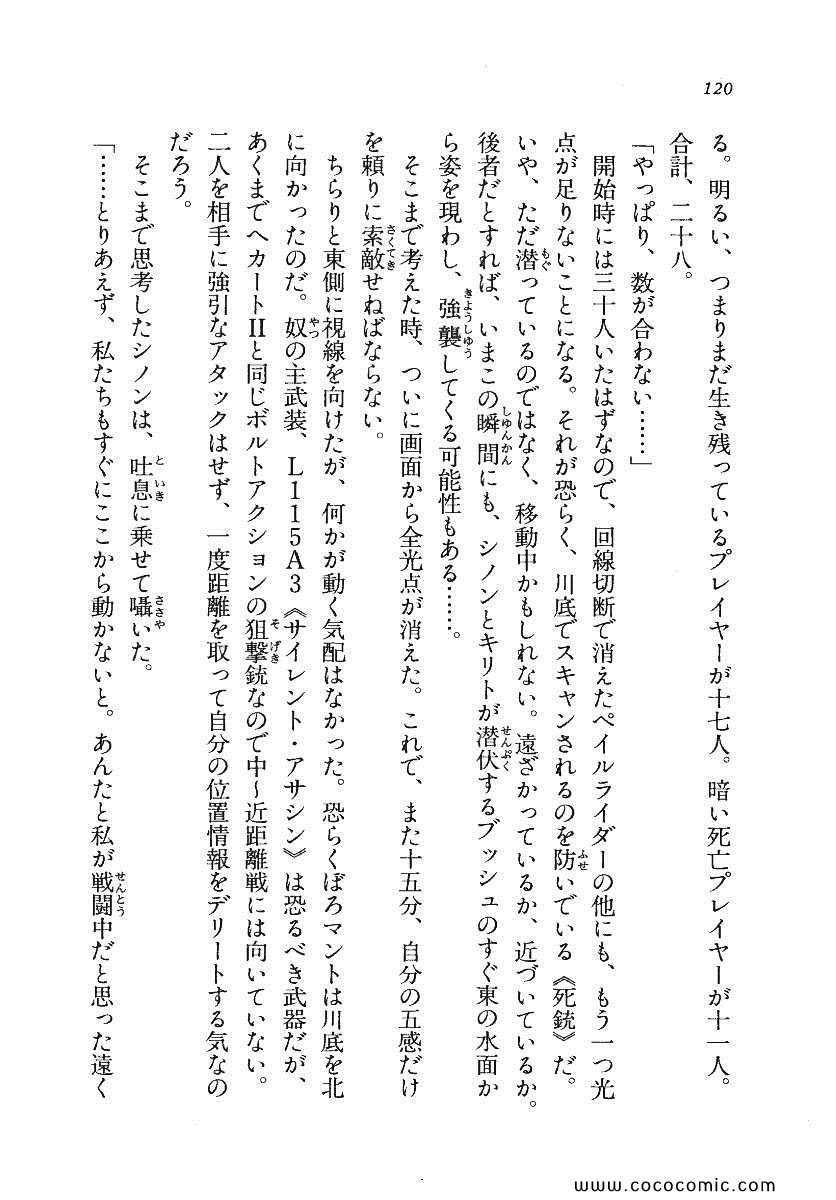 120
る。明るい、つまりまだ生き残っているプレイヤーが十七人。暗い死亡プレイヤーが十一人。
合計、二十八。
「やっぱり、数が合わない……」
開始時には三十人いたはずなので、回線切断で消えたペイルライダーの他にも、もう一つ光
点が足りないことになる。それが恐らく、川底でスキャンされるのを防いでいる《死銃》だ。
いや、ただ潜っているのではなく、移動中かもしれない。遠ざかっているか、近づいているか。
後者だとすれば、いまこの瞬間にも、シノンとキリトが潜伏するブッシュのすぐ東の水面か
ら姿を現わし、強襲してくる可能性もある……。
そこまで考えた時、ついに画面から全光点が消えた。これで、また十五分、自分の五感だけ
を頼りに索敵せねばならない。
ちらりと東側に視線を向けたが、何かが動く気配はなかった。恐らくぼろマントは川底を北
に向かったのだ。奴の主武装、L115A3《サイレント・アサシン》は恐るべき武器だが、
あくまでヘカートIIと同じボルトアクションの狙撃銃なので中～近距離戦には向いていない。
二人を相手に強引なアタックはせず、一度距離を取って自分の位置情報をデリートする気なの
だろう。
そこまで思考したシノンは、吐息に乗せて囁いた。
「……とりあえず、私たちもすぐにここから動かないと。あんたと私が戦闘中だと思った遠く
www.cococomic.com